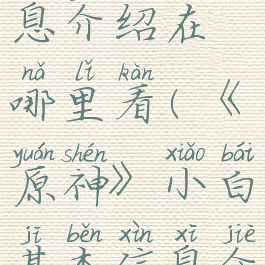 息介绍在
nǎ lǐ kàn
哪里看(《
yuán shén xiǎo bái
原神》小白
jī běn xìn xī jiè
基本信息介